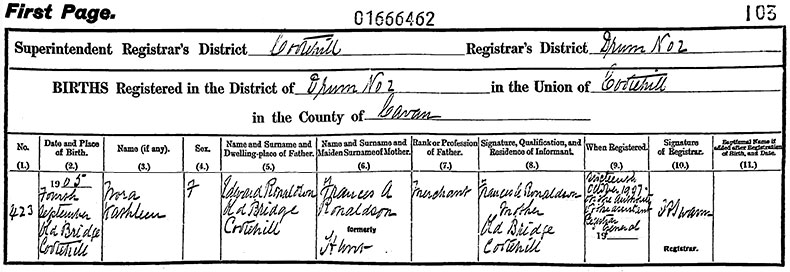 First Page.
01666462
103
Superintendent Registrar's District Cootehill Registrar's District Drum No 2
BIRTHS Registered in the District of Drum No 2 in the Union of Cootehill
in the County of Cavan
No. Date and Place of Birth. Name (if any). Sex. Name and Surname and Dwelling-place of Father. Name and Surname and Maiden Surname of Mother. Rank or Profession of Father. Signature, Qualification, and Residence of Informant. When Registered. Signature of Registrar. Baptismal Name if added after Registration of Birth, and Date.
(1.) (2.) (3.) (4.) (5.) (6.) (7.) (8.) (9.) (10.) (11.)
423
1905
Fourth
September
Old Bridge
Cootehill
Nora
Kathleen
F
Edward Ronaldson
Old Bridge
Cootehill
Frances A
Ronaldson
formerly
Hunt
Merchant
Frances A Ronaldson
Mother
Old Bridge
Cootehill
October
on the authority
of the assistant
Registrar
General
19
Registrar.